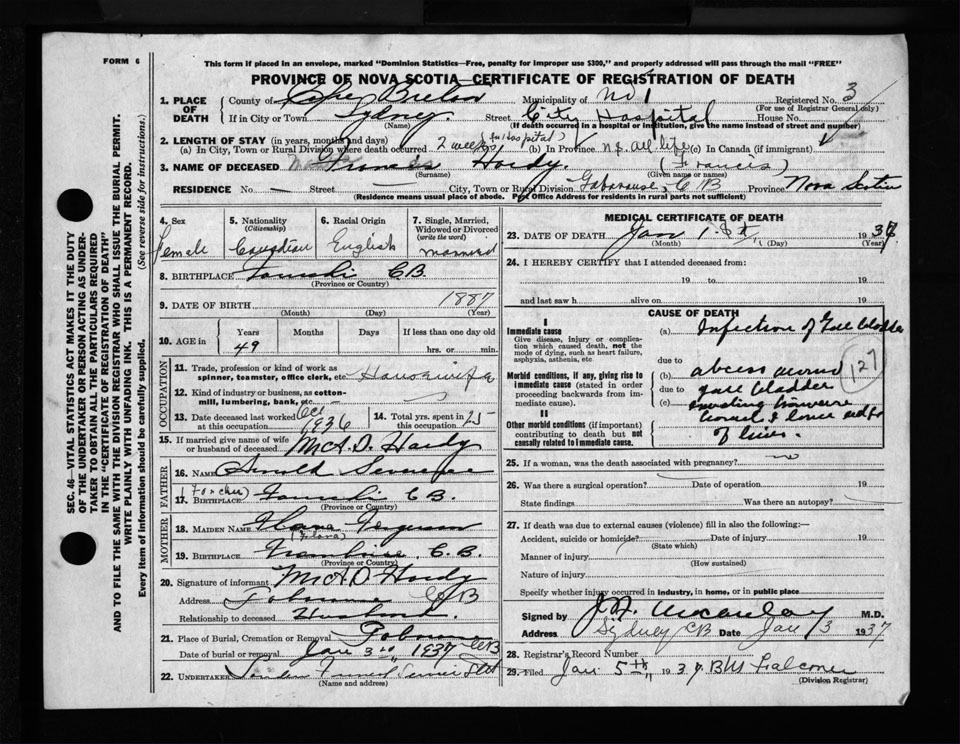 FORM 6
This form if placed in an envelope, marked "Dominion Statistics—Free, penalty for improper use $300," and properly addressed will pass through the mail "FREE"
PROVINCE OF NOVA SCOTIA—CERTIFICATE OF REGISTRATION OF DEATH
1. PLACE OF DEATH
County of Cape Breton Municipality of No 1 Registered No. 3
(For use of Registrar General only)
If in City or Town Sydney Street City Hospital House No.
(Name) (If death occurred in a hospital or institution, give the name instead of street and number)
2. LENGTH OF STAY (in years, months and days)
(a) In City, Town or Rural Division where death occurred 2 weeks (in hospital) (b) In Province N.S. all life (c) In Canada (if immigrant)
3. NAME OF DECEASED Hardy. (Francis)
(Surname) (Given name or names)
RESIDENCE No. — Street — City, Town or Rural Division Gabarouse, C B Province Nova Scotia
(Residence means usual place of abode. Post Office Address for residents in rural parts not sufficient)
4. Sex Female
5. Nationality (Citizenship) Canadian
6. Racial Origin English
7. Single, Married, Widowed or Divorced (write the word) married
8. BIRTHPLACE C.B.
(Province or Country)
9. DATE OF BIRTH 1887
(Month) (Day) (Year)
10. AGE in Years 49 Months Days If less than one day hrs. or min.
OCCUPATION
11. Trade, profession or kind of work as spinner, teamster, office clerk, etc. Housewife
12. Kind of industry or business, as cotton-mill, lumbering, bank, etc.
13. Date deceased last worked at this occupation Oct 1936
14. Total yrs. spent in 25
15. If married give name of wife or husband of deceased D. Hardy
FATHER
16. NAME Arnold
17. BIRTHPLACE (Forchu) C B.
(Province or Country)
MOTHER
18. MAIDEN NAME Ferguson
(Flora)
19. BIRTHPLACE Framboise, C.B.
(Province or Country)
20. Signature of informant D Hardy
Address C B
Relationship to deceased Husband
21. Place of Burial, Cremation or Removal CB
Date of burial or removal Jan 3rd, 1937
22. UNDERTAKER
(Name and address)
MEDICAL CERTIFICATE OF DEATH
23. DATE OF DEATH Jan 1.st, 1937
(Month) (Day) (Year)
24. I HEREBY CERTIFY that I attended deceased from:
19 to 19
and last saw h alive on 19
CAUSE OF DEATH
I
Immediate cause
Give disease, injury or complication which caused death, not the mode of dying, such as heart failure, asphyxia, asthenia, etc
(a) Infection of Gall bladder
due to
Morbid conditions, if any, giving rise to immediate cause (stated in order proceeding backwards from immediate cause).
(b) abcess around
due to gall bladder
(c)
127
II
Other morbid conditions (if important) contributing to death but not causally related to immediate cause.
of liver.
25. If a woman, was the death associated with pregnancy? no
26. Was there a surgical operation? Date of operation 19
State findings Was there an autopsy?
27. If death was due to external causes (violence) fill in also the following:—
Accident, suicide or homicide? Date of injury 19
(State which)
Manner of injury
(How sustained)
Nature of injury
Specify whether injury occurred in industry, in home, or in public place
Signed by M.D.
Address Sydney CB Date Jan 3 1937
28. Registrar's Record Number
29. Filed Jan 5th, 1937 B M Falconer
(Division Registrar)
SEC. 46—VITAL STATISTICS ACT MAKES IT THE DUTY
OF THE UNDERTAKER OR PERSON ACTING AS UNDER-
TAKER TO OBTAIN ALL THE PARTICULARS REQUIRED
IN THE "CERTIFICATE OF REGISTRATION OF DEATH"
AND TO FILE THE SAME WITH THE DIVISION REGISTRAR WHO SHALL ISSUE THE BURIAL PERMIT.
WRITE PLAINLY WITH UNFADING INK. THIS IS A PERMANENT RECORD.
Every item of information should be carefully supplied. (See reverse side for instructions.)